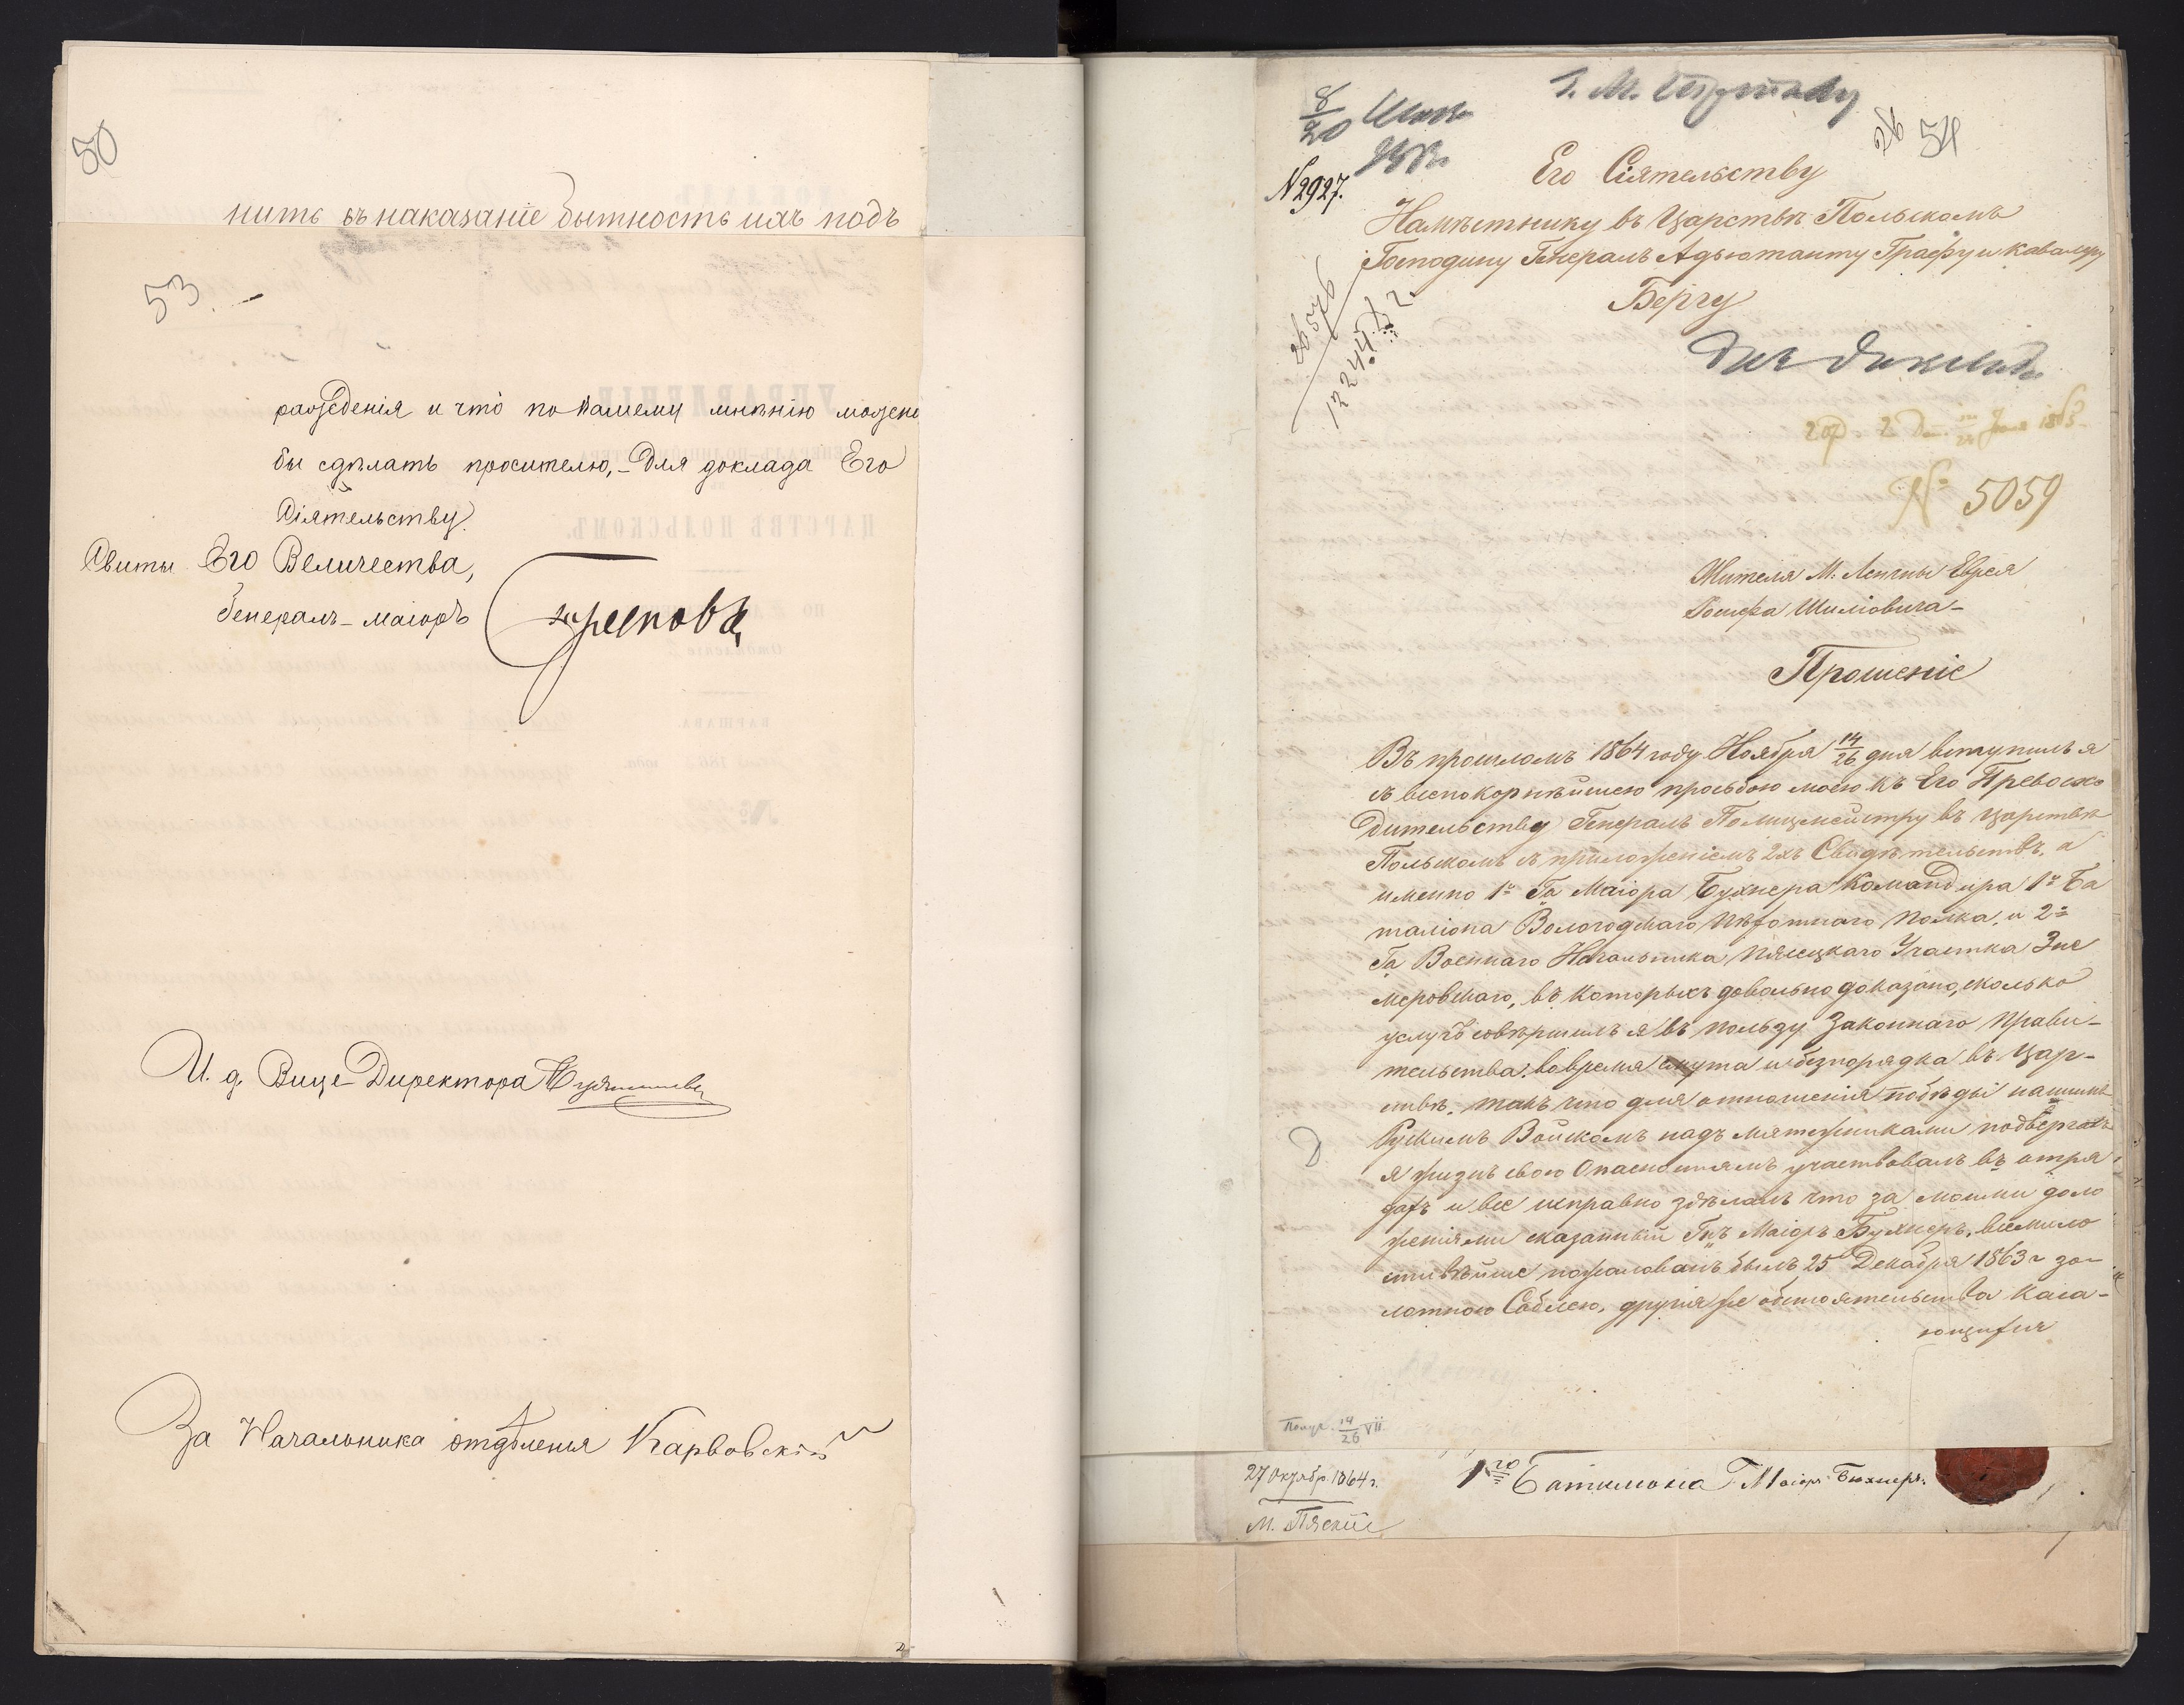 50
нить въ наказаніе бытность ихъ подъ
53.
раузсденія и что по Вашему мнѣнію можно
бы сдѣлать просителю, - для доклада Его
Сіятельству.
Свиты Его Величества,
Генералъ-маіоръ Треповъ
И. д. Вице-Директора
За Начальника отдѣленія Карвовскій
8/20
№ 2927.
26 54
Его Сіятельству
Намѣстнику въ Царствѣ Польскомъ
Господину Генералъ Адъютанту Графу и Кавалеру
Бергу
26576
12244
Для доклада
№ 5059
Жителя М. Ленчны Еврея
Іосифа Шмліовича -
Прошеніе
Въ прошломъ 1864 году Ноября 14/26 дня вступилъ я
съ всепокорнѣйшею просьбою моею къ Его Превосхо
дительству Генералъ Полицмейстру въ Царствѣ
Польскомъ съ приложеніемъ 2хъ Свидѣтельствъ, а
именно 1º Га Маіора Бухнера Командира 1º Ба
таліона Вологодскаго Пѣхотнаго Полка, и 2º
Га Военнаго Начальника Пясецкаго Участка Зне
меровскаго, въ которыхъ довольно доказано, сколько
услугъ совѣршилъ я въ пользу Законнаго Прави-
тельства. вовремя смута и безпорядка въ Цар-
ствѣ. такъ что для отношенія побѣды нашимъ
Рускимъ Войскомъ надъ мятежниками подвергалъ
я жизнь свою Опасностямъ участвовалъ въ отря
дахъ и все исправно здѣлалъ что за моими доло
женіями сказанный Гнъ Маіоръ Бухнеръ, всемило
стивѣйше пожалованъ былъ 25 Декабря 1863 г зо-
лотною Саблею, другія же обстоятельства каса-
ющихся
Получ. 14/26 VII
27 Октябр. 1864 г.
М. Пяски
1го Баталіона Маіоръ Бухнеръ.